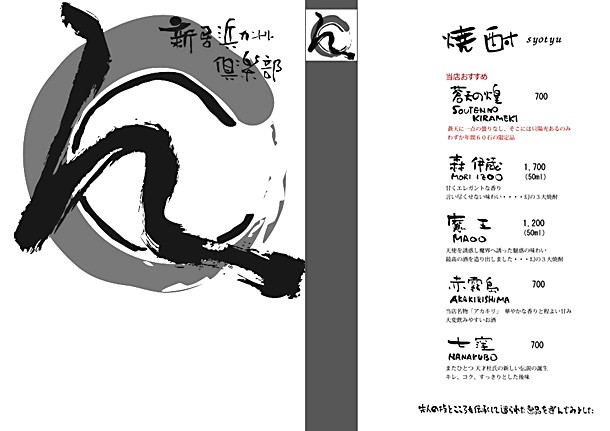 新居浜カントリー
倶楽部
ん
ん
焼酎 syotyu
当店おすすめ
蒼天の煌 700
SOUTENNO
KIRAMEKI
蒼天に一点の曇りなし、そこには只陽光あるのみ
わずか年間60石の限定品
森伊蔵 1,700
MORI IZOO (50ml)
甘くエレガントな香り
言い尽くせない味わい・・・・幻の3大焼酎
魔王 1,200
MAOO (50ml)
天使を誘惑し魔界へ誘った魅惑の味わい
最高の酒を造り出しました・・・幻の3大焼酎
赤霧島 700
AKAKIRISHIMA
当店名物「アカキリ」 華やかな香りと程よい甘み
大変飲みやすいお酒
七窪 700
NANAKUBO
またひとつ 天才杜氏の新しい伝説の誕生
キレ、コク、すっきりとした後味